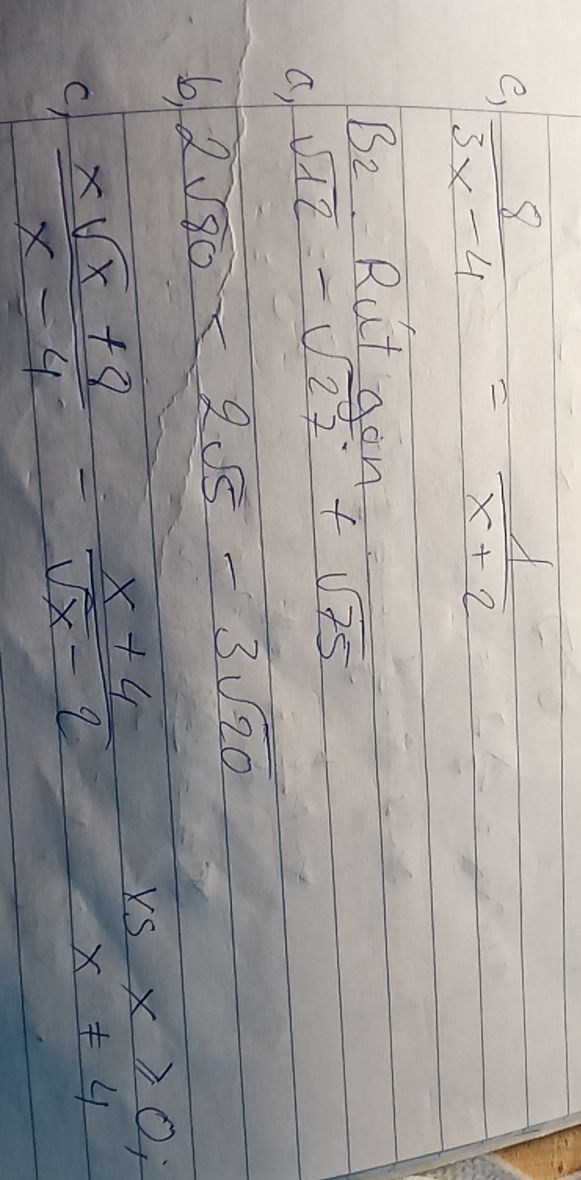 c, 8/(3x - 4) = 1/(x + 2)
B2. Rút gọn
a, √12 - √27 + √75
b, 2√80 - 2√5 - 3√20
c, (x√x + 8)/(x - 4) - (x + 4)/(√x - 2) vs x ≥ 0; x ≠ 4